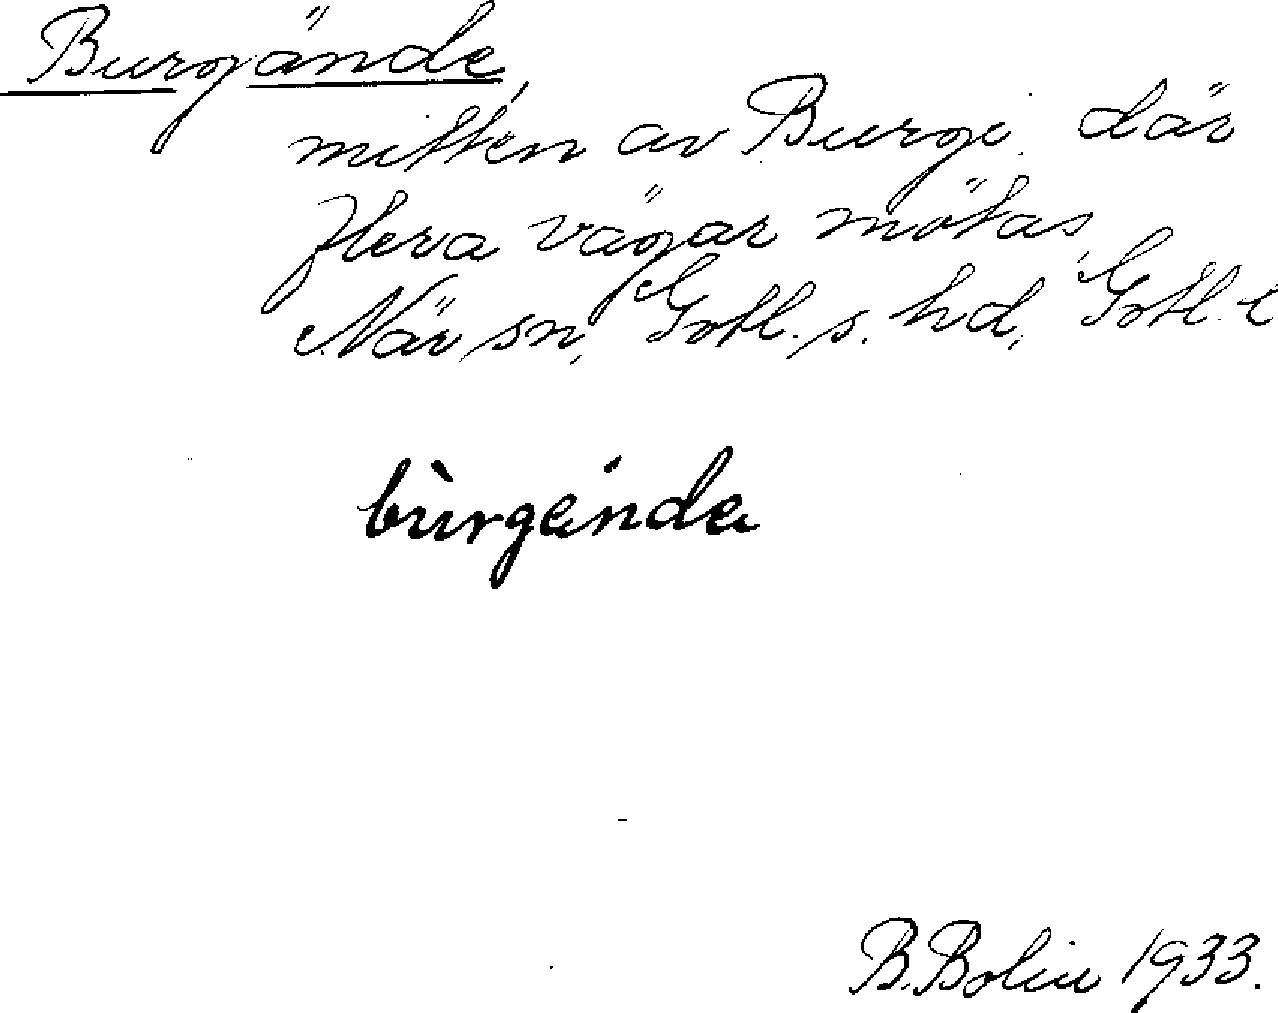 Burgände,
mitten av Burge, där
flera vägar mötas,
När sn, Gotl. s. hd, Gotl. l
bùrgända
B. Bolin 1933.